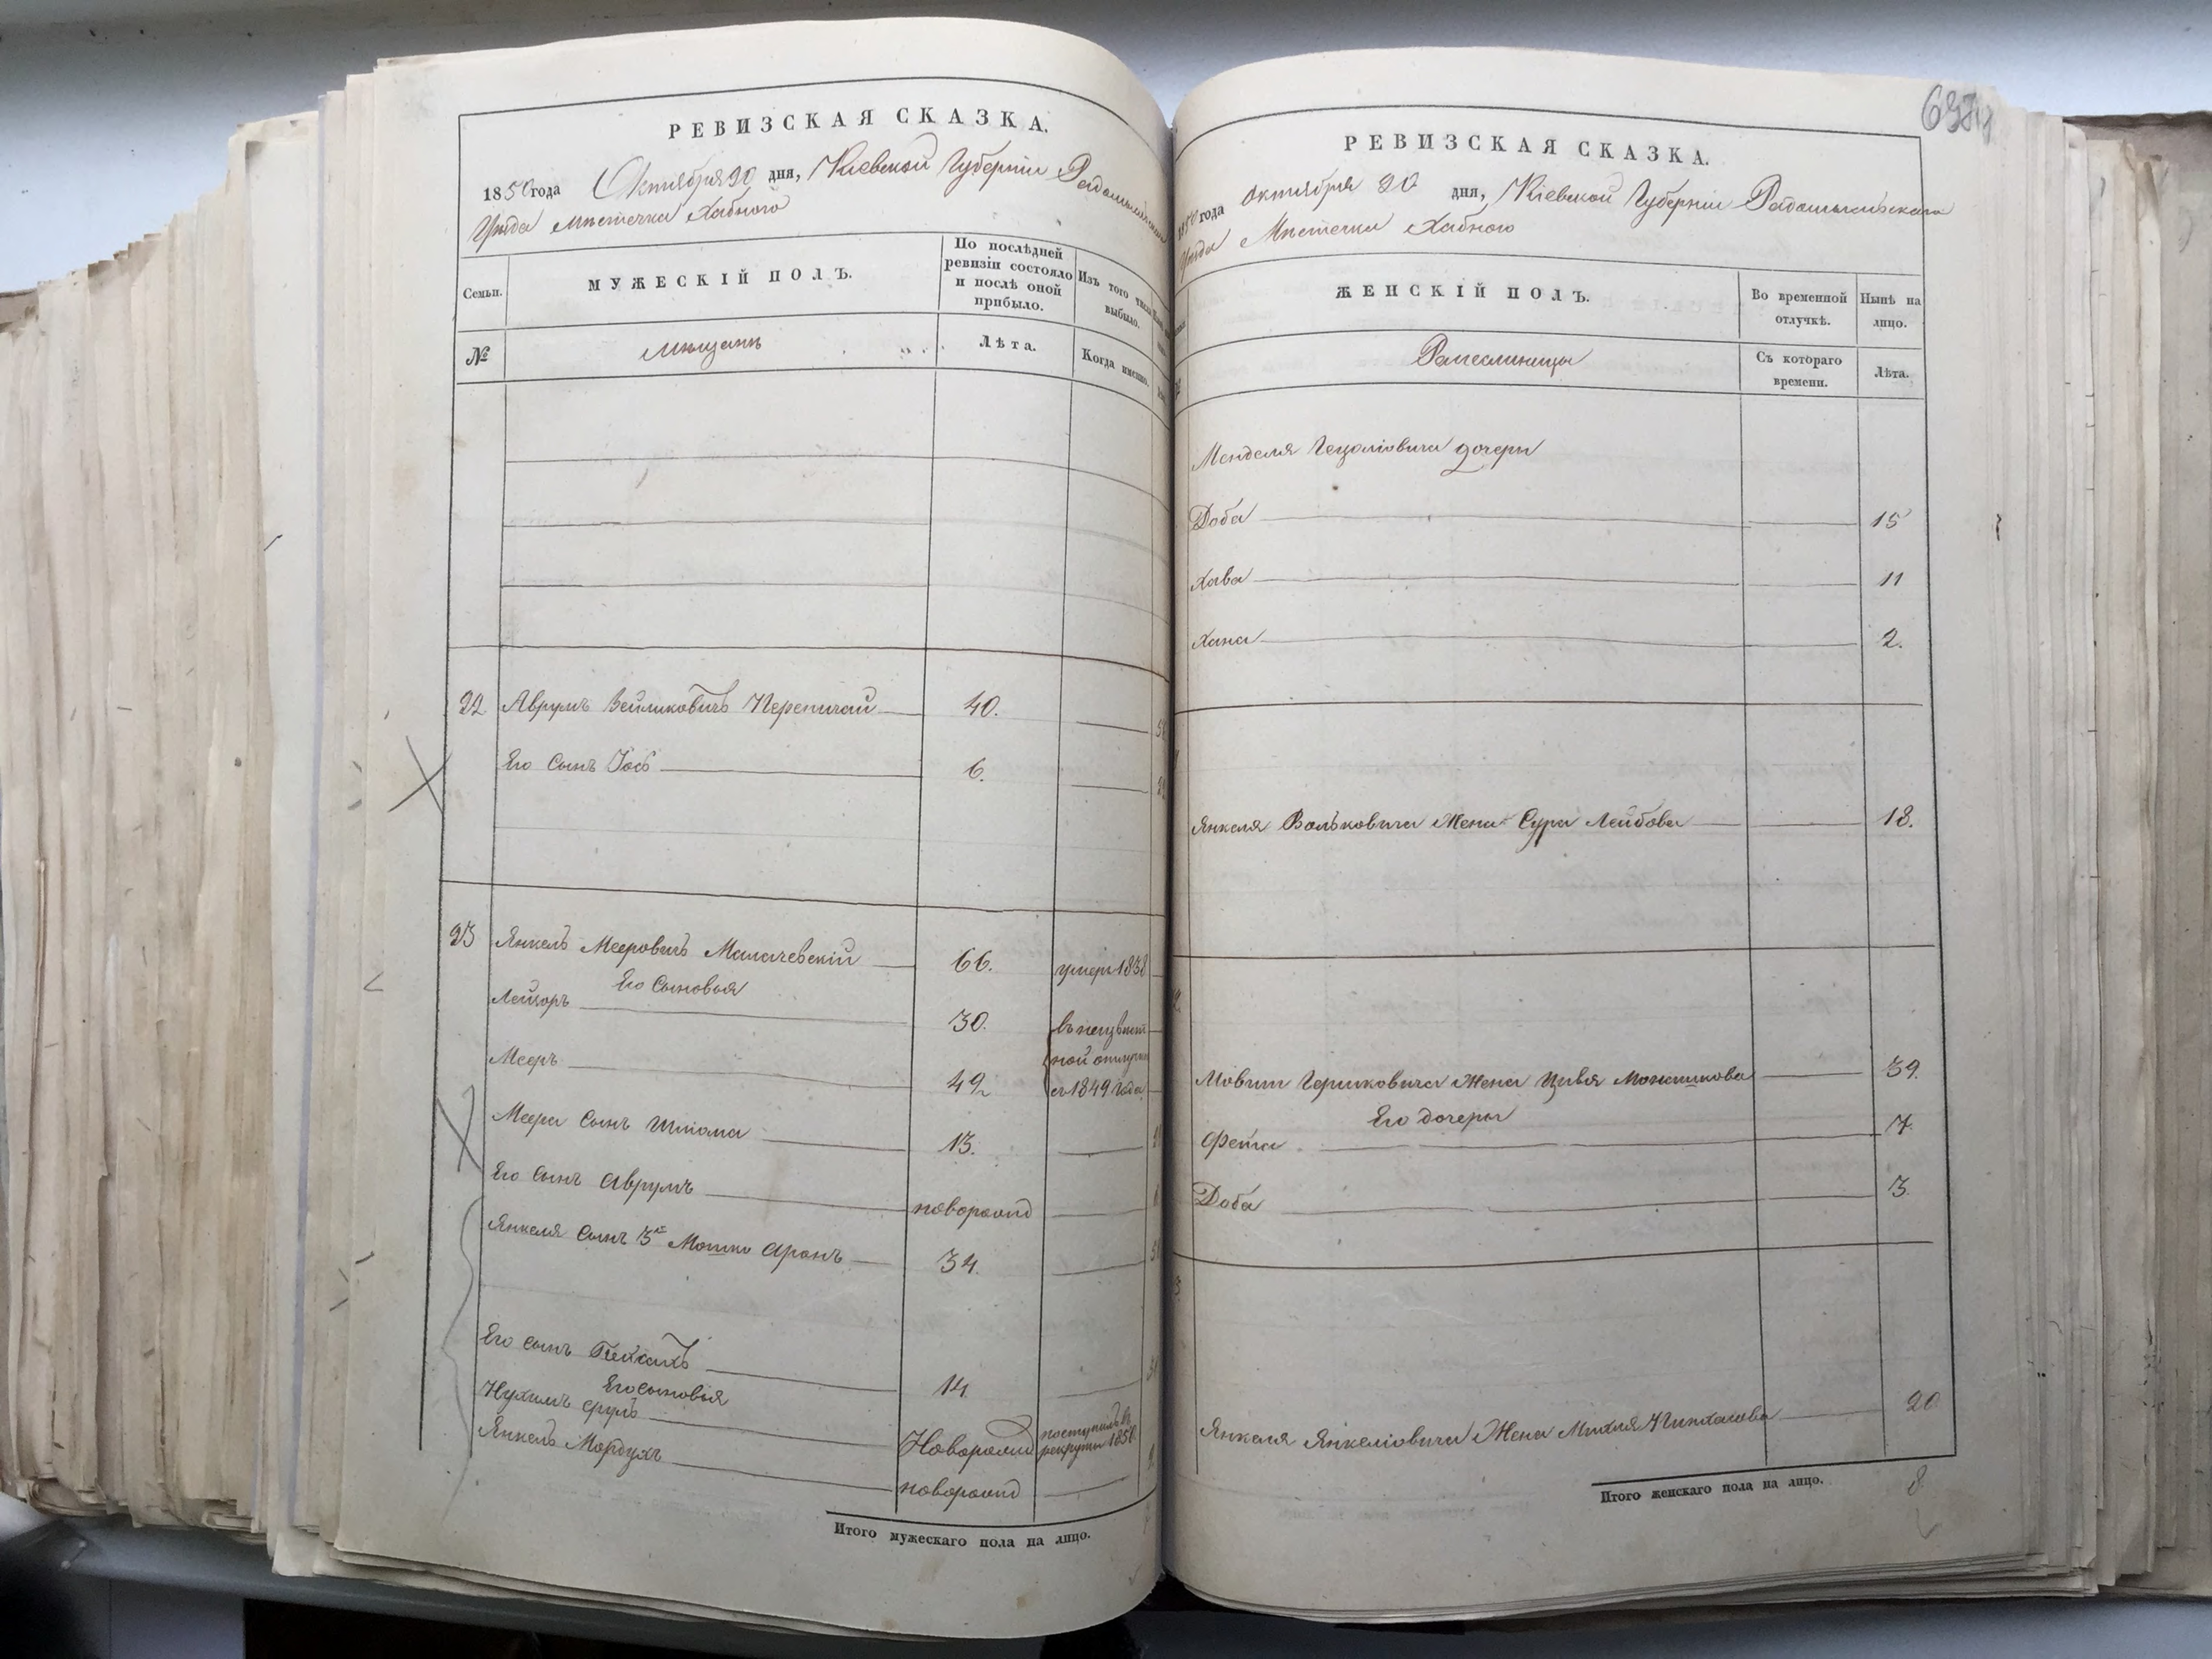 РЕВИЗСКАЯ СКАЗКА.
1850 года Октября 20 дня, Кіевской Губерніи Радомысльскаго
Уѣзда Мѣстечка Хабного
Семьи.
МУЖЕСКІЙ ПОЛЪ.
По послѣдней
ревизіи состояло
и послѣ оной
прибыло.
Изъ того числа
выбыло.
№
Мещанъ
Лѣта.
Когда именно.
22 Аврумъ Перепичай 40.
Его Сынъ Іось 6.
23 Янкель Мееровичъ Малачевскій 66. умеръ 1838
Его Сыновья
Лейзоръ 30. въ неизвѣст
ной отлучкѣ
Мееръ 49 съ 1849 года
Меера Сынъ Шлома 13.
Его Сынъ Аврумъ новорожд
Янкеля Сынъ 3й Мошко Аронъ 34.
Его сынъ 14
Его сыновья
Нухимъ Сруль Новорожд поступилъ въ
рекруты 1850
Янкель Мордухъ новорожд
Итого мужескаго пола на лицо.
РЕВИЗСКАЯ СКАЗКА.
1850 года Октября 20 дня, Кіевской Губерніи Радомысльскаго
Уѣзда Мѣстечка Хабного
ЖЕНСКІЙ ПОЛЪ.
Во временной
отлучкѣ.
Нынѣ на
лицо.
Съ котораго
времени.
Лѣта.
Менделя дочери
Доба 15
Хава 11
Хана 2.
Янкеля Вольковича Жена Сура Лейбова 18.
Гершковича Жена Цивья Мошкова 39.
Его дочери
7.
Доба 3.
Янкеля Янкеліовича Жена Пинхасова 20
Итого женскаго пола на лицо. 8